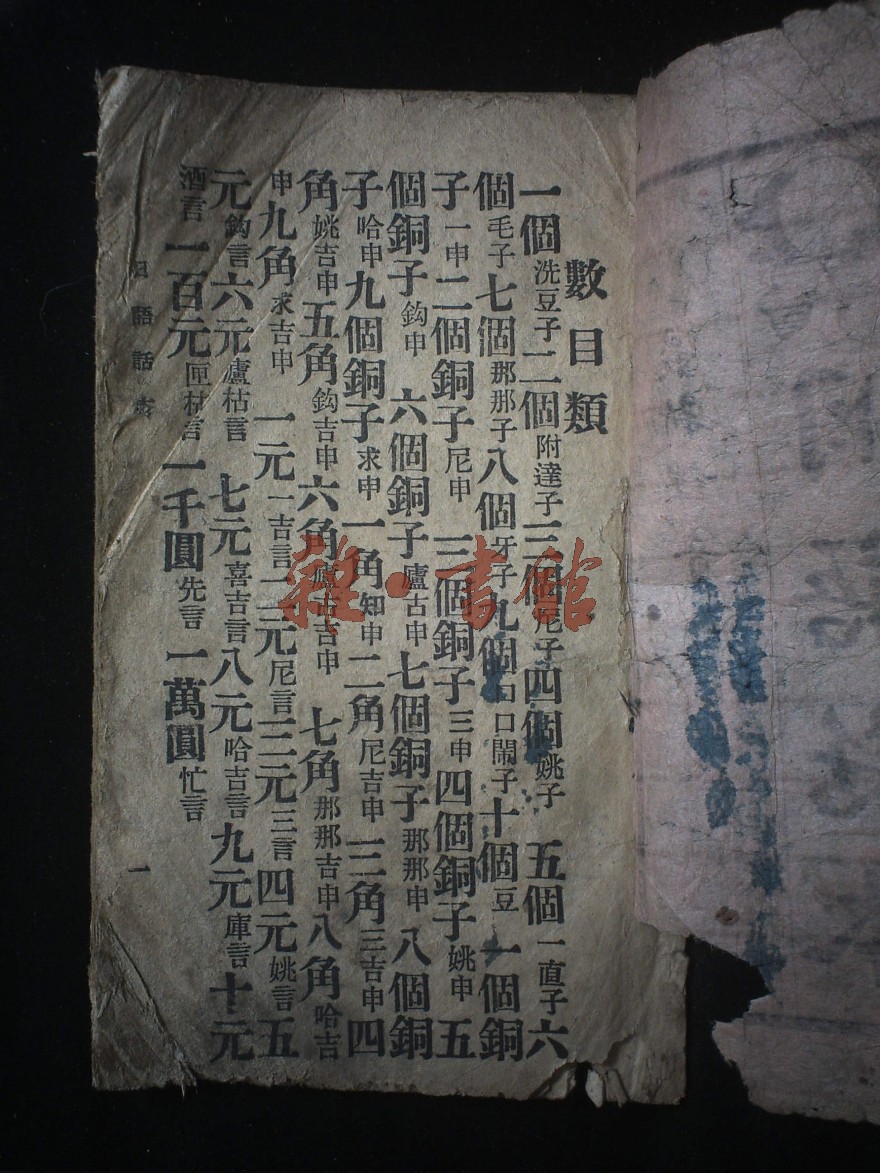 數目類
一個洗豆子二個附達子三個尼子四個姚子 五個一直子六
個毛子七個那那子八個牙子九個口口鬧子十個豆 一個銅
子一申二個銅子尼申 三個銅子三申四個銅子姚申五
個銅子鈎申 六個銅子廬古申七個銅子那那申八個銅
子哈申九個銅子求申一角知申二角尼吉申三角三吉申四
角姚吉申五角鈎吉申六角廬古吉申 七角那那吉申八角哈吉
申九角求吉申 一元一吉言二元尼言三元三言四元姚言五
元鈎言六元廬枯言 七元喜吉言八元哈吉言九元庫言十元
酒言一百元匣枯言一千圓先言一萬圓忙言
語話
一
雜·書館